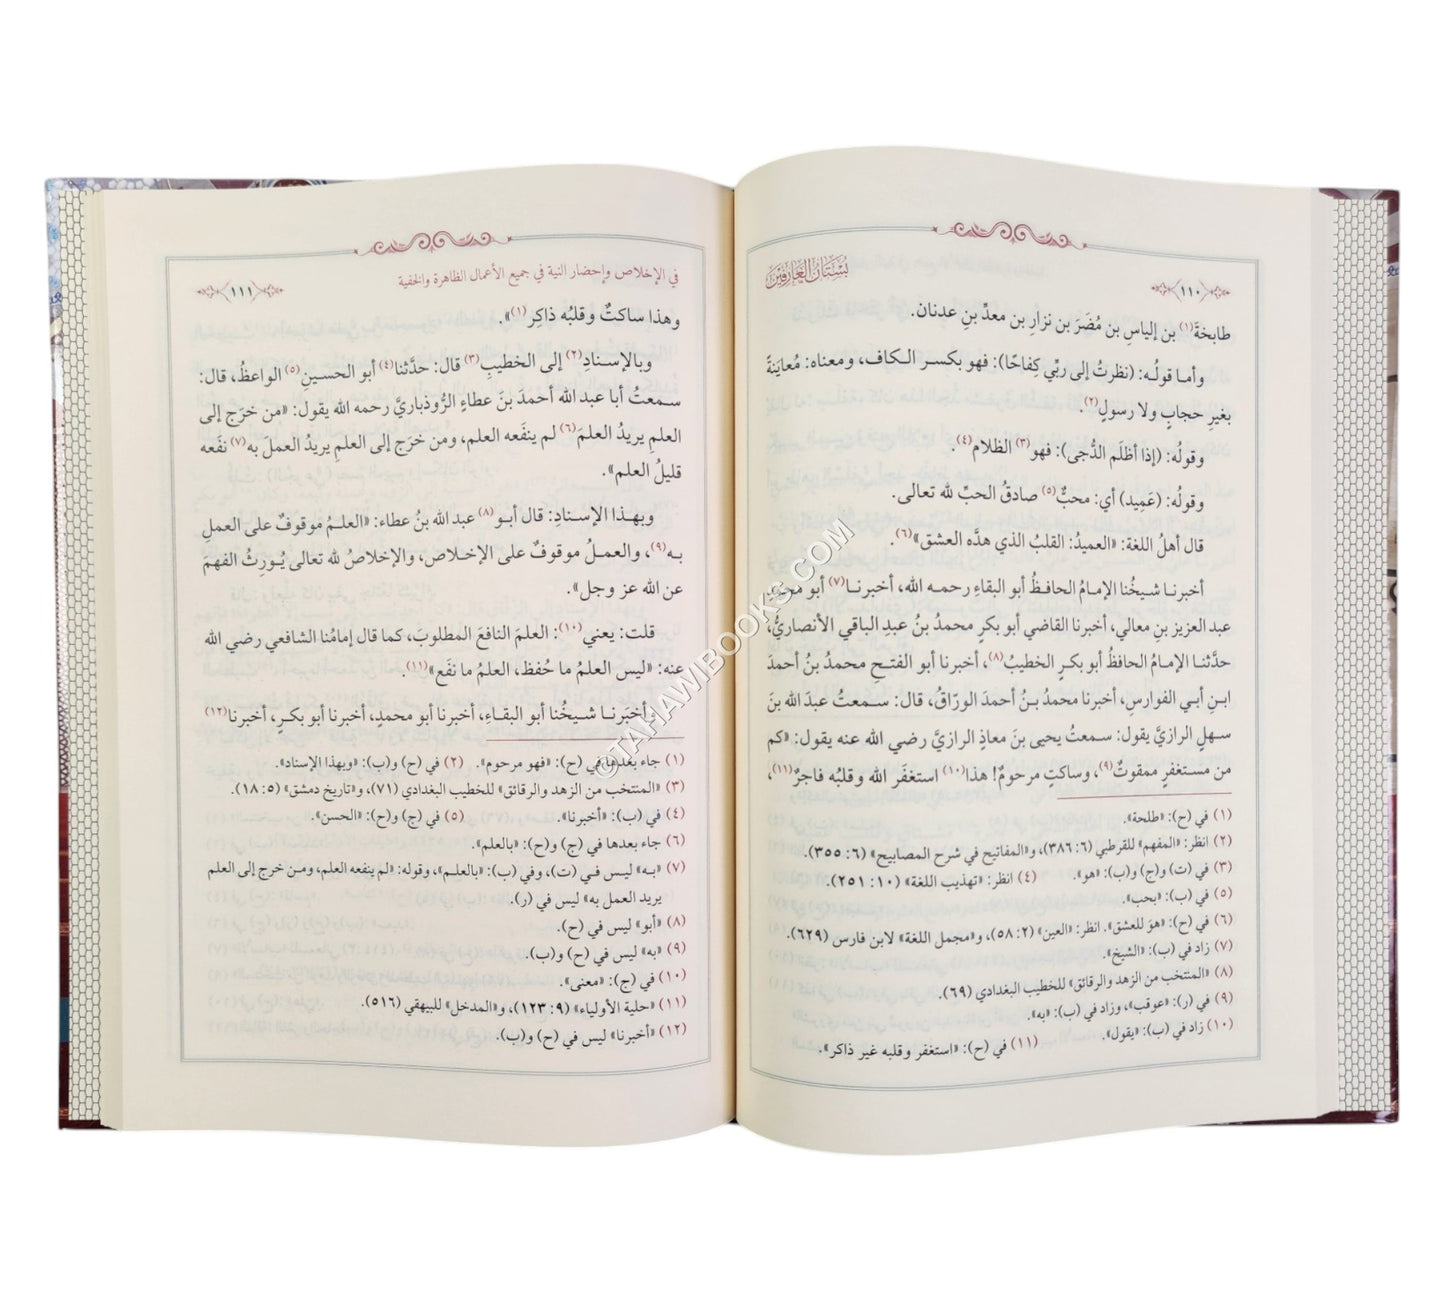 بستان العارفين
١١٠
طابخةَ(١) بن إلياسِ بن مُضَرَ بن نزارِ بن معدِّ بنِ عدنان.
وأما قولُه: (نظرتُ إلى ربِّي كِفاحًا): فهو بكسر الكاف، ومعناه: مُعايَنةً
بغيرِ حجابٍ ولا رسولٍ(٢).
وقولُه: (إذا أظلَم الدُّجى): فهو(٣) الظلام(٤).
وقولُه: (عَمِيد) أي: محبٌّ(٥) صادقُ الحبِّ لله تعالى.
قال أهلُ اللغة: «العميدُ: القلبُ الذي هدَّه العشق»(٦).
أخبرنا شيخُنا الإمامُ الحافظُ أبو البقاءِ رحمه الله، أخبرنا(٧) أبو محمدٍ
عبد العزيز بنِ معالي، أخبرنا القاضي أبو بكرٍ محمدُ بنُ عبدِ الباقي الأنصاريُّ،
حدَّثنا الإمامُ الحافظُ أبو بكرٍ الخطيبُ(٨)، أخبرنا أبو الفتحِ محمدُ بنُ أحمدَ
ابنِ أبي الفوارسِ، أخبرنا محمدُ بنُ أحمدَ الورّاقُ، قال: سمعتُ عبدَ الله بنَ
سهلٍ الرازيَّ يقول: سمعتُ يحيى بنَ معاذٍ الرازيَّ رضي الله عنه يقول: «كم
من مستغفرٍ ممقوتٌ(٩)، وساكتٍ مرحومٌ! هذا(١٠) استغفَر الله وقلبُه فاجرٌ(١١)،
(١) في (ح): «طلحة».
(٢) انظر: «المفهم» للقرطبي (٦: ٣٨٦)، و«المفاتيح في شرح المصابيح» (٦: ٣٥٥).
(٣) في (ت) و(ج) و(ب): «هو». (٤) انظر: «تهذيب اللغة» (١٠: ٢٥١).
(٥) في (ب): «بحب».
(٦) في (ح): «هوَ للعشق». انظر: «العين» (٢: ٥٨)، و«مجمل اللغة» لابن فارس (٦٢٩).
(٧) زاد في (ب): «الشيخ».
(٨) «المنتخب من الزهد والرقائق» للخطيب البغدادي (٦٩).
(٩) في (ر): «عوقب»، وزاد في (ب): «به».
(١٠) زاد في (ب): «يقول». (١١) في (ح): «استغفر وقلبه غير ذاكر».
في الإخلاص وإحضار النية في جميع الأعمال الظاهرة والخفية
١١١
وهذا ساكتٌ وقلبُه ذاكِر(١)».
وبالإسنادِ(٢) إلى الخطيبِ(٣) قال: حدَّثنا(٤) أبو الحسينِ(٥) الواعظُ، قال:
سمعتُ أبا عبد الله أحمدَ بنَ عطاءٍ الرُّوذباريَّ رحمه الله يقول: «من خرَج إلى
العلمِ يريدُ العلمَ(٦) لم ينفَعه العلم، ومن خرَج إلى العلمِ يريدُ العملَ به(٧) نفَعه
قليلُ العلم».
وبهذا الإسنادِ: قال أبو(٨) عبد الله بنُ عطاء: «العلمُ موقوفٌ على العملِ
به(٩)، والعملُ موقوفٌ على الإخلاص، والإخلاصُ لله تعالى يُورِثُ الفهمَ
عن الله عز وجل».
قلت: يعني(١٠): العلمَ النافعَ المطلوبَ، كما قال إمامُنا الشافعي رضي الله
عنه: «ليس العلمُ ما حُفظ، العلمُ ما نفَع»(١١).
أخبَرنا شيخُنا أبو البقاءِ، أخبرنا أبو محمدٍ، أخبرنا أبو بكرٍ، أخبرنا(١٢)
(١) جاء بعدها في (ح): «فهو مرحوم». (٢) في (ح) و(ب): «وبهذا الإسناد».
(٣) «المنتخب من الزهد والرقائق» للخطيب البغدادي (٧١)، و«تاريخ دمشق» (٥: ١٨).
(٤) في (ب): «أخبرنا». (٥) في (ج) و(ح): «الحسن».
(٦) جاء بعدها في (ج) و(ح): «بالعلم».
(٧) «به» ليس في (ت)، وفي (ب): «بالعلم»، وقوله: «لم ينفعه العلم، ومن خرج إلى العلم
يريد العمل به» ليس في (ر).
(٨) «أبو» ليس في (ح).
(٩) «به» ليس في (ح) و(ب).
(١٠) في (ج): «معنى».
(١١) «حلية الأولياء» (٩: ١٢٣)، و«المدخل» للبيهقي (٥١٦).
(١٢) «أخبرنا» ليس في (ح) و(ب).
©TAHAWIBOOKS.COM